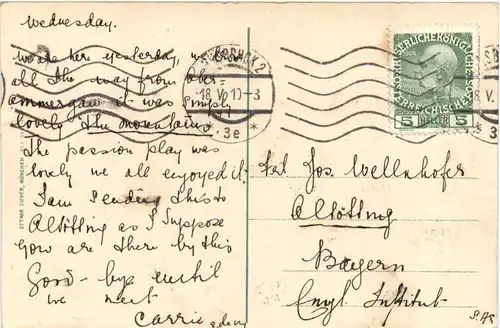 Wednesday.
we are here yesterday,
all the way from Ober-
ammergau it was simply
lovely the mountains
The passion play was
lovely we all enjoyed it.
I am sending this to
Altötting as I suppose
you are there by this
Good-bye until
we meet
Carrie
OTTMAR ZIEHER, MÜNCHEN
2
18.V.10-3
* 3e *
KAISERLICHE KÖNIGLICHE
ÖSTERREICHISCHE POST
5 HELLER 5
8.V.
* 3
Frl Jos. Wellnhofer
Altötting
Bayern
Engl. Institut